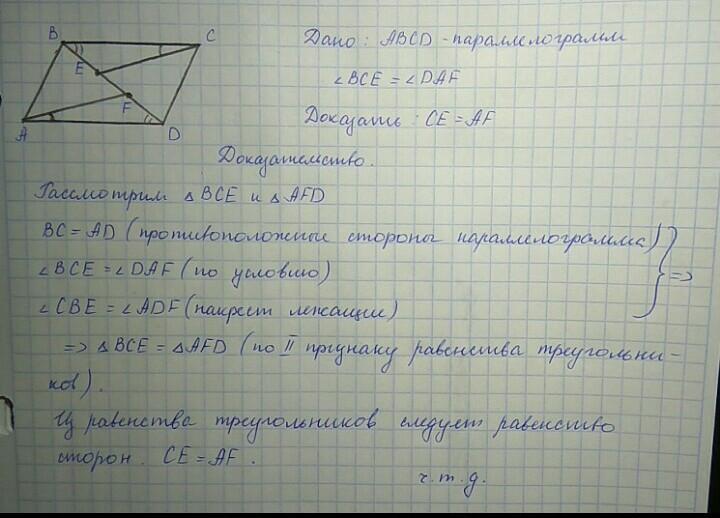 B
C
E
F
A
D
Дано: ABCD - параллелограмм
∠BCE = ∠DAF
Доказать: CE = AF
Доказательство.
Рассмотрим △BCE и △AFD
BC = AD (противоположные стороны параллелограмма)
∠BCE = ∠DAF (по условию)
=>
∠CBE = ∠ADF (накрест лежащие)
=> △BCE = △AFD (по II признаку равенства треугольни-
ков).
Из равенства треугольников следует равенство
сторон. CE = AF.
ч.т.д.